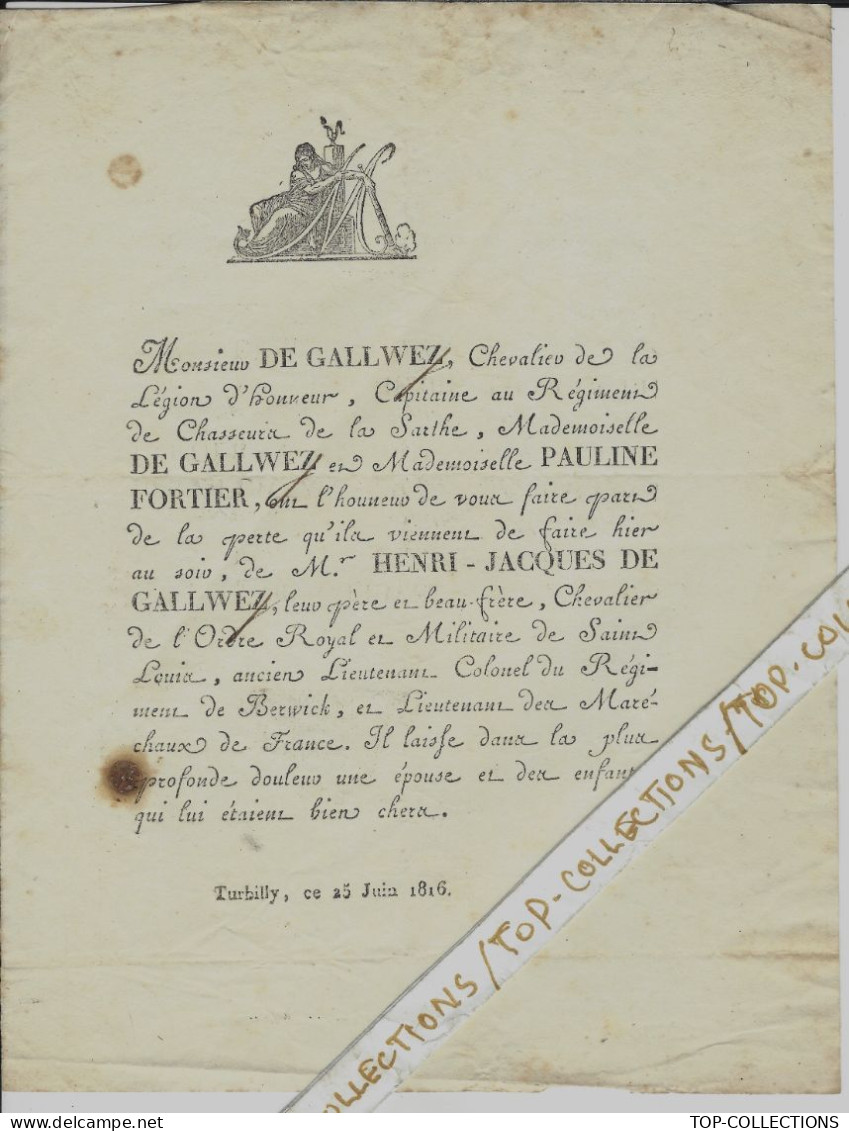 Monsieur DE GALLWEZ, Chevalier de la
Légion d'honneur, Capitaine au Régiment
de Chasseurs de la Sarthe, Mademoiselle
DE GALLWEZ et Mademoiselle PAULINE
FORTIER, ont l'honneur de vous faire part
de la perte qu'ils viennent de faire hier
au soir, de M.r HENRI-JACQUES DE
GALLWEZ, leur père et beau-frère, Chevalier
de l'Ordre Royal et Militaire de Saint
Louis, ancien Lieutenant Colonel du Régi-
ment de Berwick, et Lieutenant des Maré-
chaux de France. Il laisse dans la plus
profonde douleur une épouse et des enfants
qui lui étaient bien chers.
Turbilly, ce 25 Juin 1816.
COLLECTIONS / TOP-COLLECTIONS / TOP-COL
TOP-COLLECTIONS